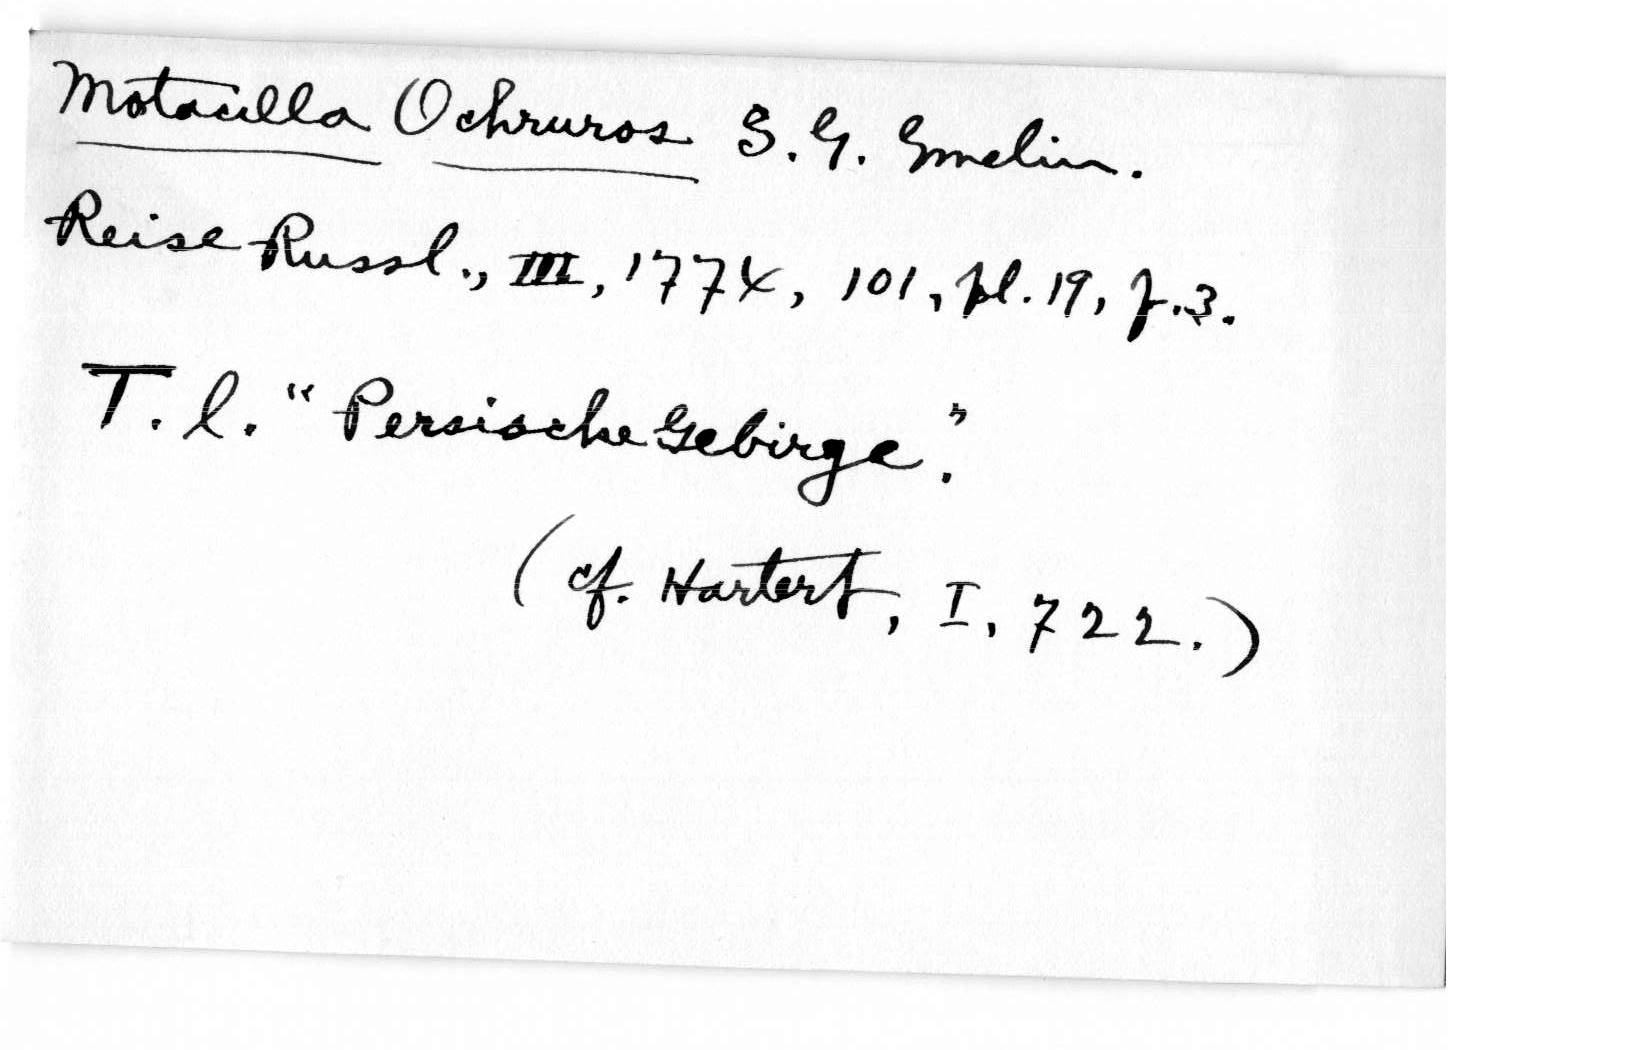 Motacilla Ochruros S. G. Gmelin.
Reise Russl., III, 1774, 101, pl. 19, f. 3.
T. l. "Persische Gebirge."
(cf. Hartert, I, 722.)